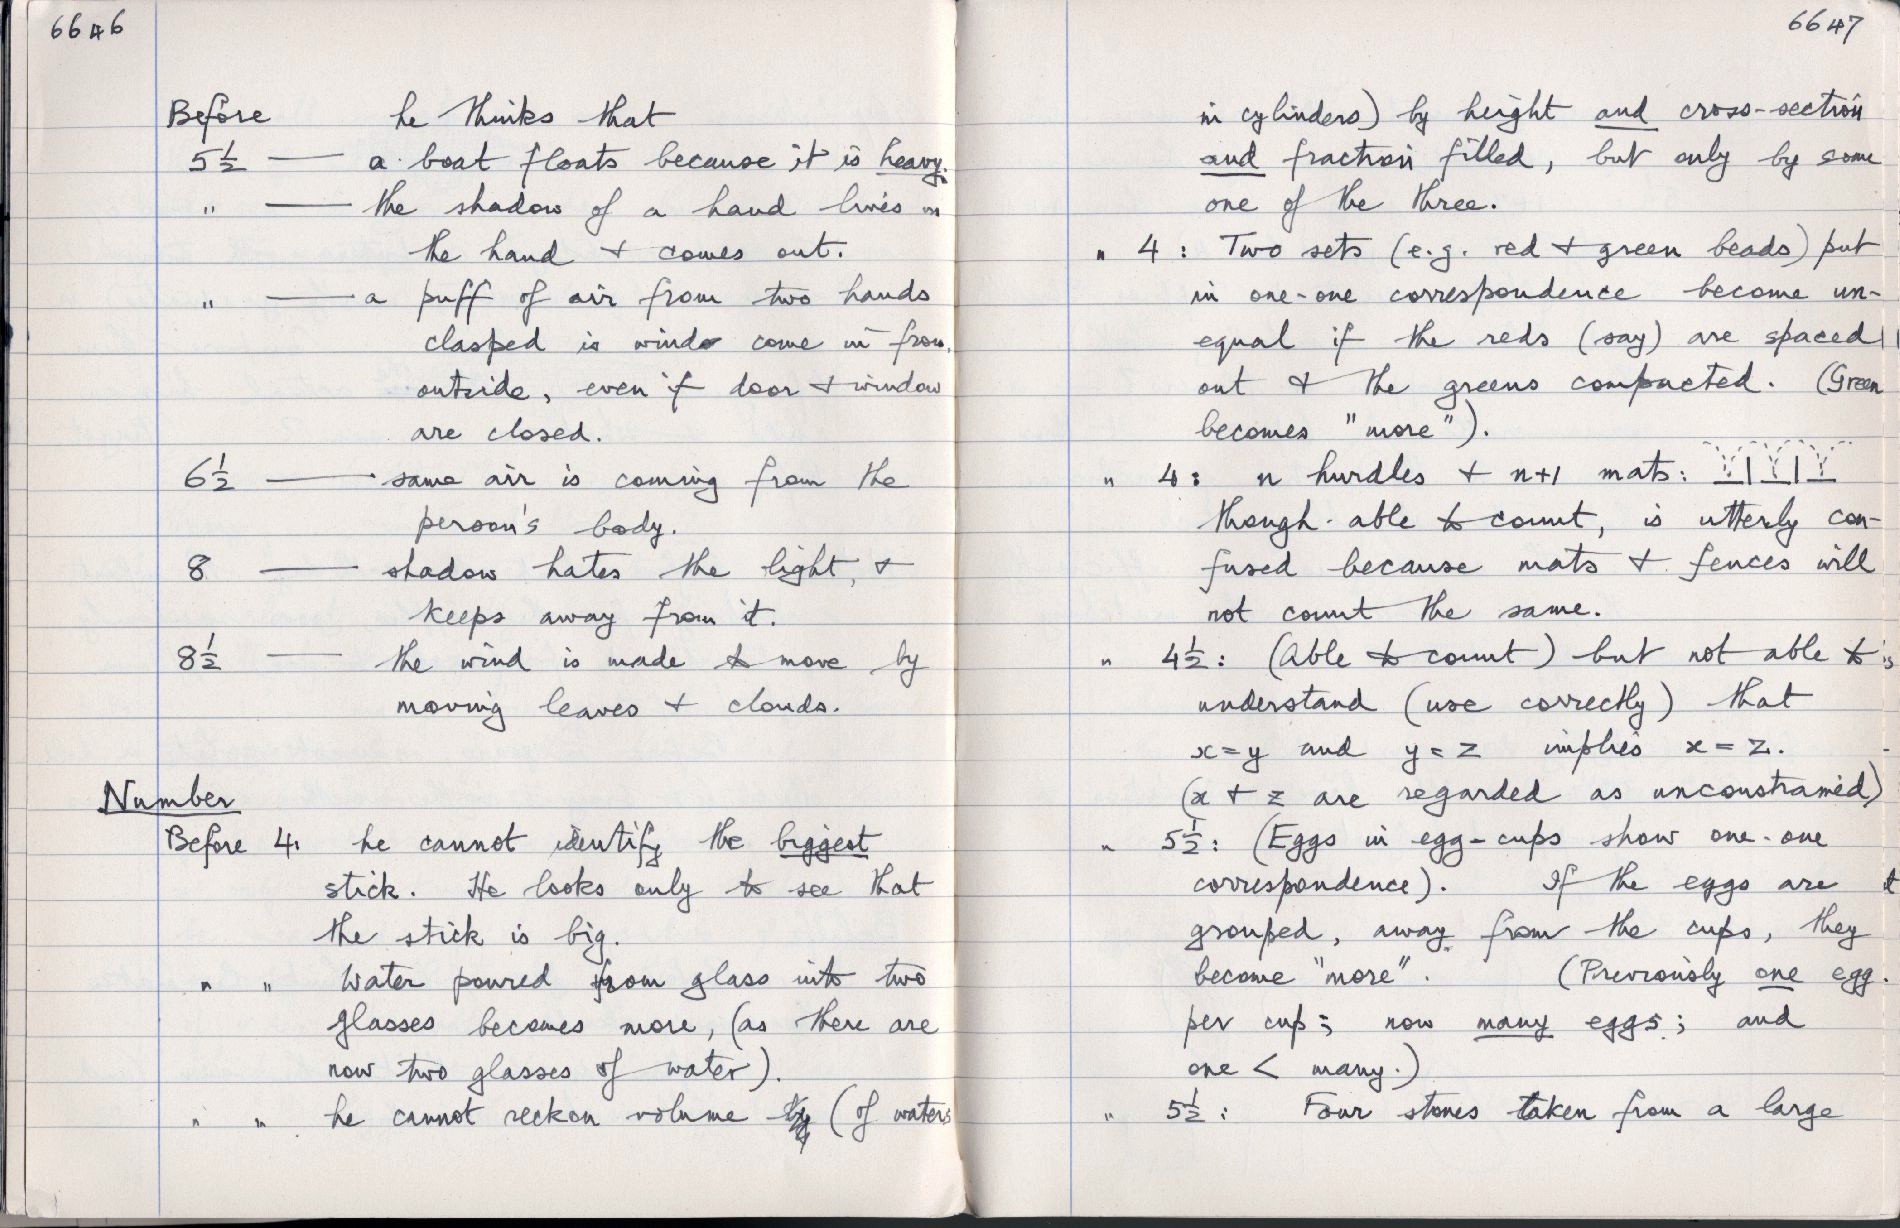 6646
Before he thinks that
5½ — a boat floats because it is heavy.
" — the shadow of a hand lives in
the hand & comes out.
" — a puff of air from two hands
clasped is wind come in from
outside, even if door & window
are closed.
6½ — same air is coming from the
person's body.
8 — shadow hates the light, &
keeps away from it.
8½ — the wind is made to move by
moving leaves & clouds.
Number
Before 4. he cannot identify the biggest
stick. He looks only to see that
the stick is big.
" " Water poured from glass into two
glasses becomes more, (as there are
now two glasses of water).
" " he cannot reckon volume (of waters
6647
in cylinders) by height and cross-section
and fraction filled, but only by some
one of the three.
" 4: Two sets (e.g. red & green beads) put
in one-one correspondence become un-
equal if the reds (say) are spaced
out & the greens compacted. (Green
becomes "more").
" 4: n hurdles & n+1 mats:
though able to count, is utterly con-
fused because mats & fences will
not count the same.
" 4½: (Able to count) but not able to
understand (use correctly) that
x=y and y=z implies x=z.
(x & z are regarded as unconstrained)
" 5½: (Eggs in egg-cups show one-one
correspondence). If the eggs are
grouped, away from the cups, they
become "more". (Previously one egg
per cup; now many eggs; and
one < many.)
" 5½: Four stones taken from a large